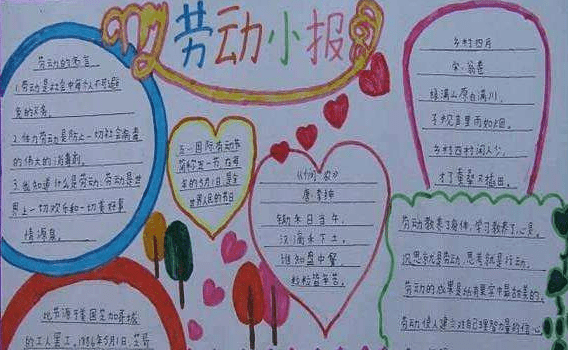 劳动小报
劳动的名言
1.劳动是社会中每个人不可避
免的义务。
2.体力劳动是防止一切社会病毒
的伟大的消毒剂。
3.我知道什么是劳动:劳动是世
界上一切欢乐和一切美好事
情源泉。
五一国际劳动节
简称五一节,在每
年的5月1日是全
世界人民的节日
《悯农》
唐·李绅
锄禾日当午,
汗滴禾下土。
谁知盘中餐
粒粒皆辛苦。
乡村四月
宋·翁卷
绿满山原白满川,
子规声里雨如烟。
乡村四月闲人少,
才了蚕桑又插田。
劳动教养了身体,学习教养了心灵。
沉思就是劳动,思考就是行动。
劳动的成果是所有果实中最甜美的。
劳动使人建立对自己理智力量的信心
此节源于美国芝加哥城
的工人罢工。1886年5月1日,芝哥